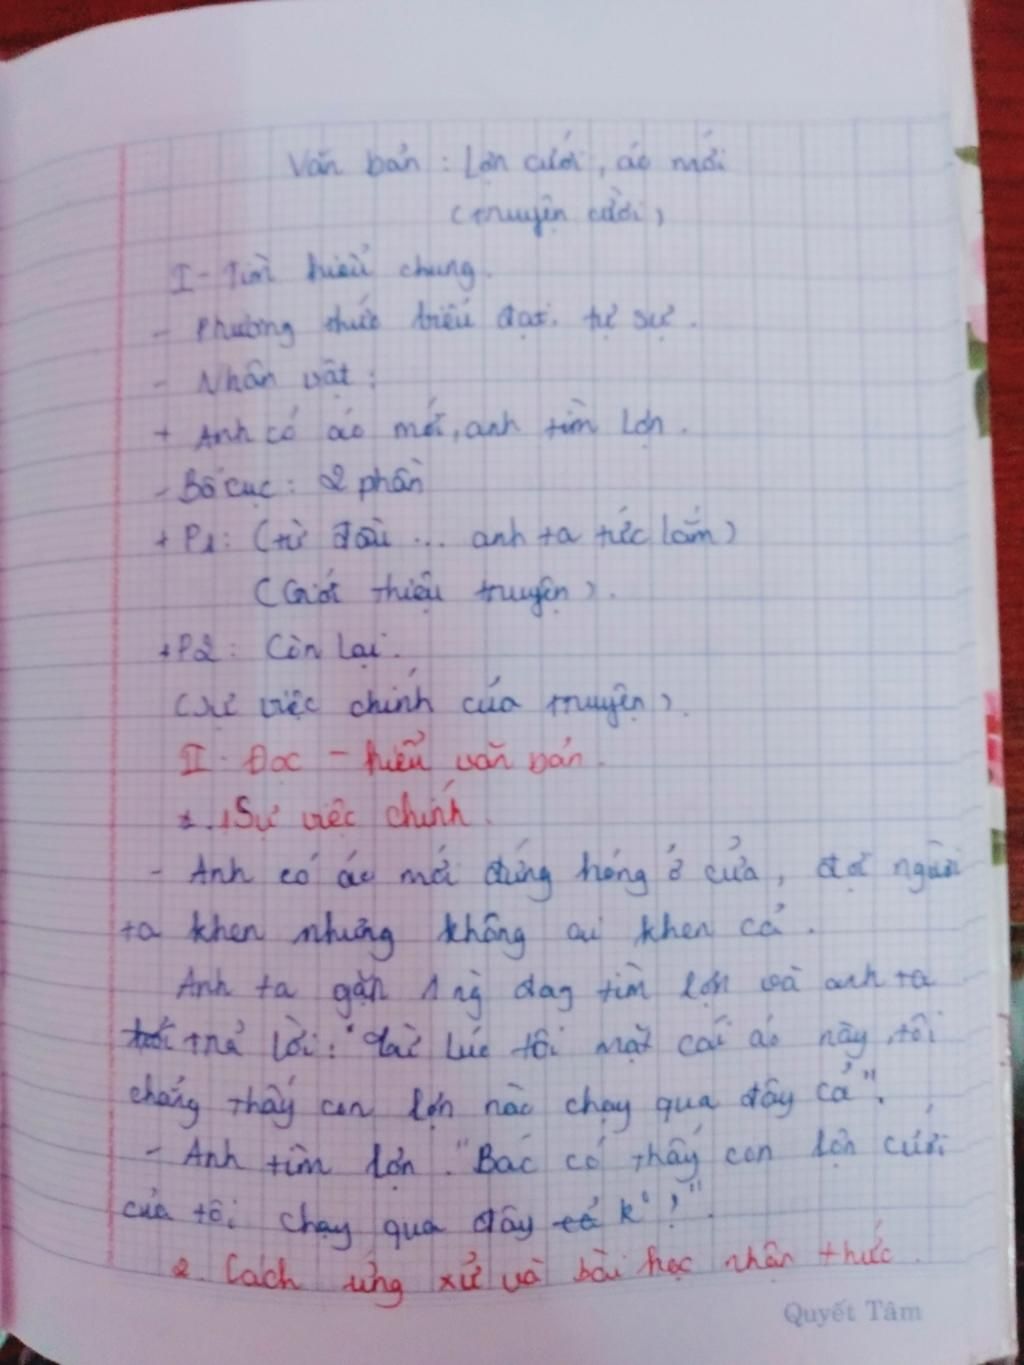 Văn bản : Lợn cưới, áo mới
(truyện cười)
I - Tìm hiểu chung.
- Phương thức biểu đạt. tự sự.
- Nhân vật :
+ Anh có áo mới, anh tìm lợn.
- Bố cục : 2 phần
+ P1: (từ đầu ... anh ta tức lắm)
(Giới thiệu truyện).
+ P2 : Còn lại.
(sự việc chính của truyện).
II - Đọc - hiểu văn bản.
1. Sự việc chính.
- Anh có áo mới đứng hóng ở cửa, đợi người
ta khen nhưng không ai khen cả.
Anh ta gặp 1 ng đag tìm lợn và anh ta
trả lời: "Từ lúc tôi mặc cái áo này, tôi
chẳng thấy con lợn nào chạy qua đây cả".
- Anh tìm lợn. "Bác có thấy con lợn cưới
của tôi chạy qua đây k° ?".
2. Cách ứng xử và bài học nhận thức.
Quyết Tâm